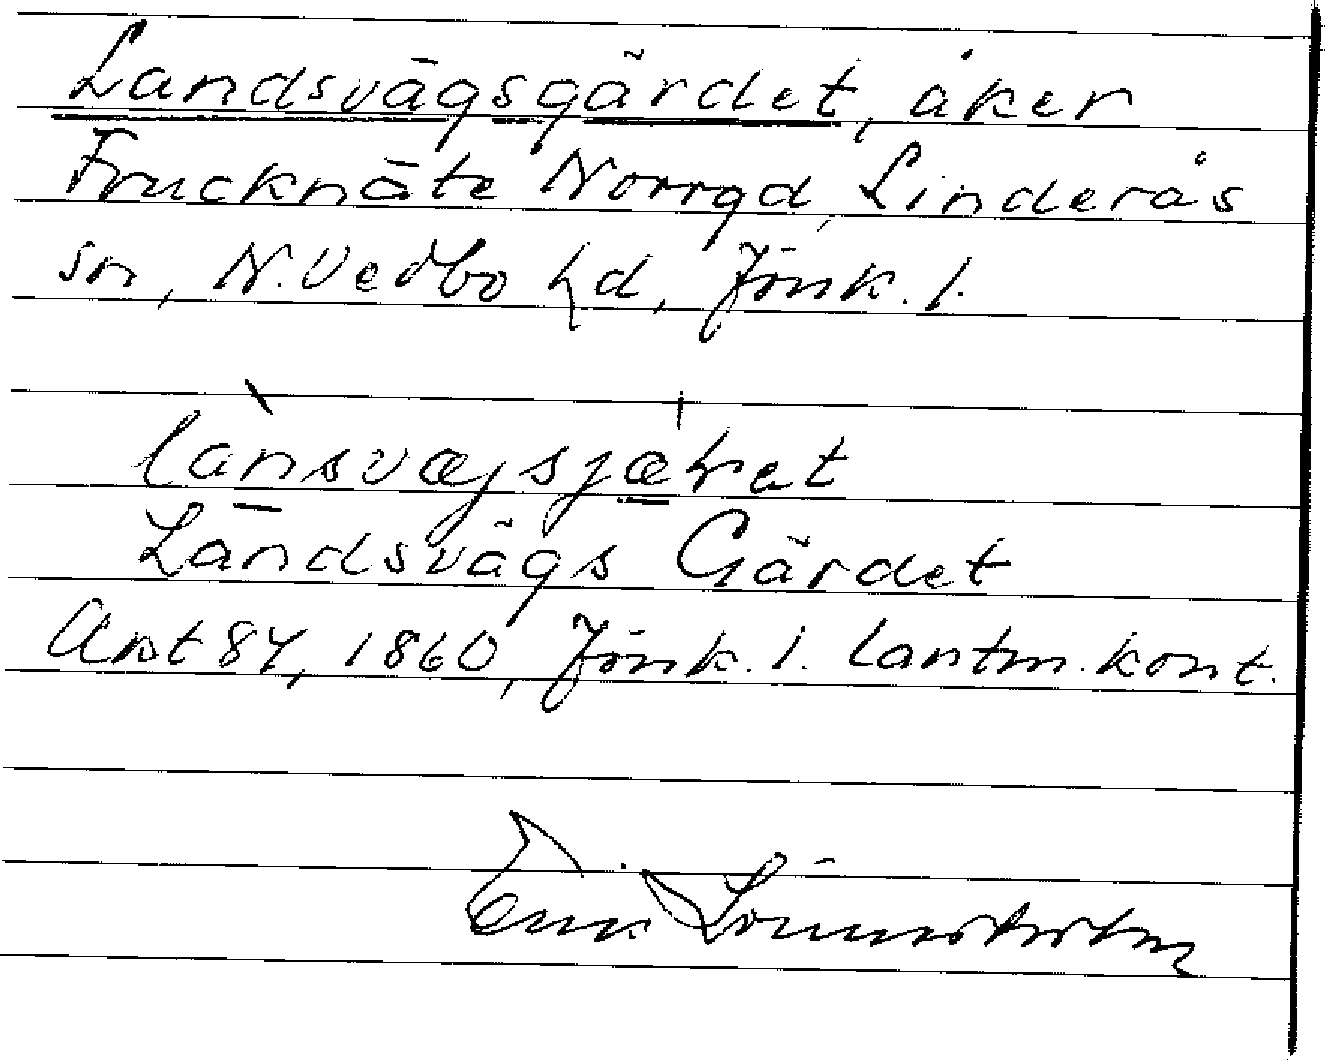 Landsvägsgärdet, åker
Frucknäte Norrgd, Linderås
sn, N. Vedbo hd, Jönk. l.
lànsvæjsjæ̱ret
Landsvägs Gärdet
Akt 84, 1860, Jönk. l. lantm. kont.
Erik